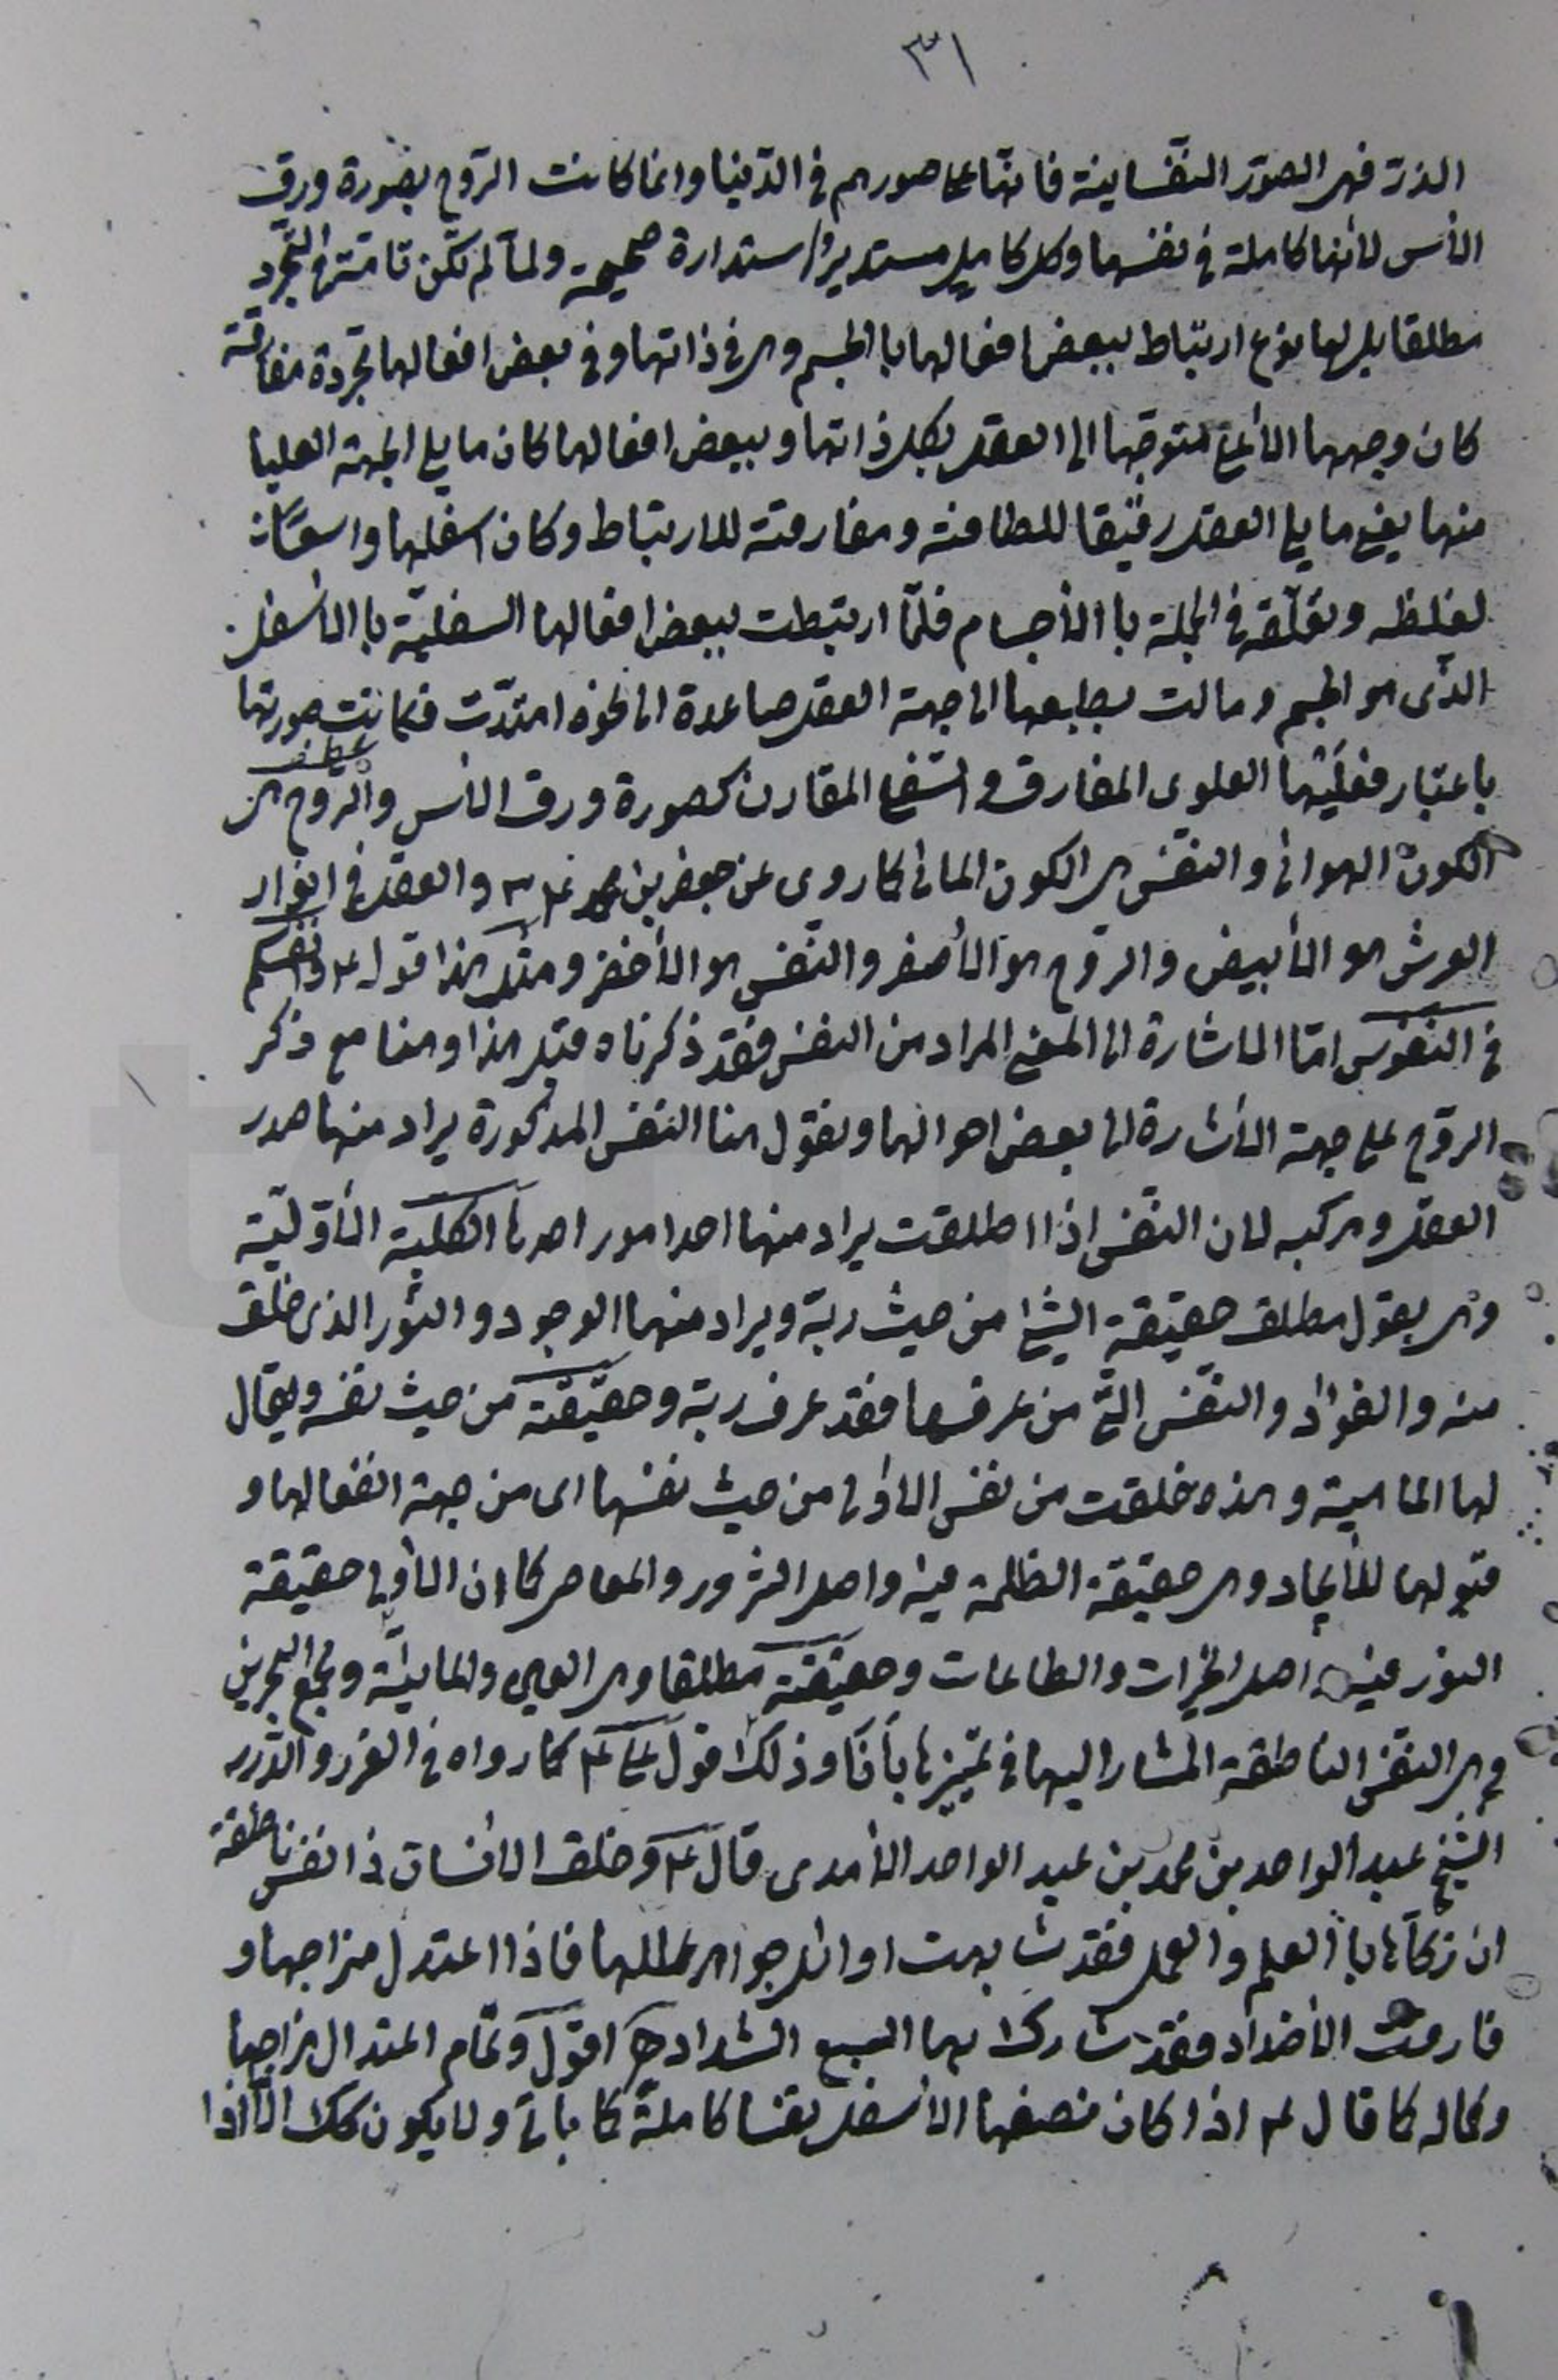 ٣١
الذرّ فهي الصّور النّفسانيّة فانّها على صورهم في الدّنيا وانما كانت الرّوح بصورة ورق
الأس لأنها كاملة في نفسها وكل كامل مستدير استدارة صحيحة ولما لم تكن تامّة في التّجرّد
مطلقا بل لها نوع ارتباط ببعض افعالها با الجسم وهي في ذاتها وفي بعض افعالها مجردة مفارقة
كان وجهها الأعلى متوجّها الى العقل بكل ذاتها وببعض افعالها كان ما يلي الجهة العليا
منها يعني ما يلي العقل رقيقا للطافته ومفارقته للارتباط وكان اسفلها واسعًا
لغلظه وتعلّقه في الجملة با الأجسام فلمّا ارتبطت ببعض افعالها السفليّة با الأسفل
الذّى هو الجسم ومالت بطبعها الى جهة العقل صاعدة الى نحوه امتدّت فكانت صورتها
باعتبار فعليها العلوى المفارق والسفلي المقارن كصورة ورق الأس والرّوح هى
الكون الهوائى والنّفس هى الكون المائى كما روى عن جعفر بن محمد ع والعقل في انوار
العرش هو الأبيض والرّوح هو الأصفر والنّفس هو الأخضر ومثل هذا قول ع وانفسكم
في النّفوس امّا الاشارة الى المعنى المراد من النفس فقد ذكرناه قبل هذا وهنا مع ذكر
الرّوح على جهة الأشارة الى بعض احوالها ونقول هنا النّفس المذكورة يراد منها صدر
العقل ومركبه لان النّفس اذا اطلقت يراد منها احد امور احدها الكليّة الأوّليّة
وهى بقول مطلق حقيقة الشّئ من حيث ربّه ويراد منها الوجود والنّور الذى خلق
منه والفؤاد والنّفس الّتى من عرفها فقد عرف ربّه وحقيقته من حيث نفسه ويقال
لها الماهية وهذه خلقت من نفس الاولى من حيث نفسها اى من جهة انفعالها و
قبولها للأيجاد وهى حقيقة الظلمة فيه واصل الشرور والمعاصى كما ان الأولى حقيقة
النور فيه واصل الخيرات والطاعات وحقيقته مطلقا وهى ومجمع البحرين
وهى النّفس الناطقة المشار اليها في تمييزها بأنَا وذلك قول على ع كما رواه في الغرر والدّرر
الشّيخ عبد الواحد بن محمد بن عبد الواحد الأمدى قال ع وخلق الأنسان ذا نفس ناطقة
ان زكّاها با العلم والعمل فقد شابهت اوائل جواهر عللها فاذا اعتدل مزاجها و
فارقت الأضداد فقد شارك بها السبع الشداد اقول وتمام اعتدال مزاجها
وكماله كما قال ع اذا كان نصفها الأسفل نفسا كاملة كما يأتى ولا يكون كك الّا اذا